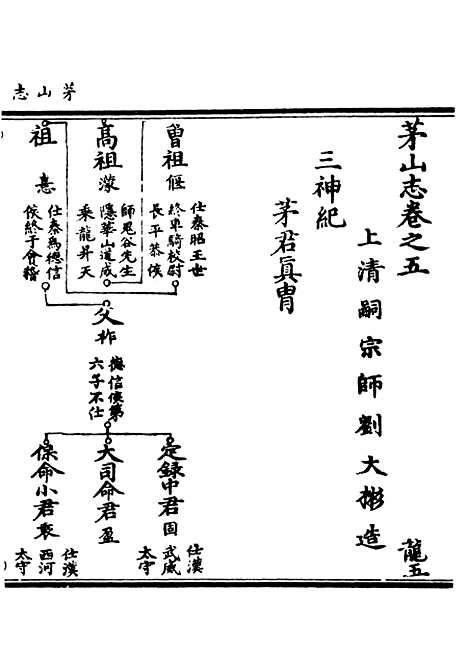 茅山志
茅山志卷之五
龍五
上清嗣宗師劉大彬造
三神紀
茅君真胄
曾祖偃
仕秦昭王世
終車騎校尉
長平恭侯
高祖濛
師鬼谷先生
隱華山道成
乘龍昇天
祖憙
仕秦爲德信
侯終于會稽
父祚
德信侯第
六子不仕
定録中君固
仕漢
武威
太守
大司命君盈
保命小君衷
仕漢
西河
太守